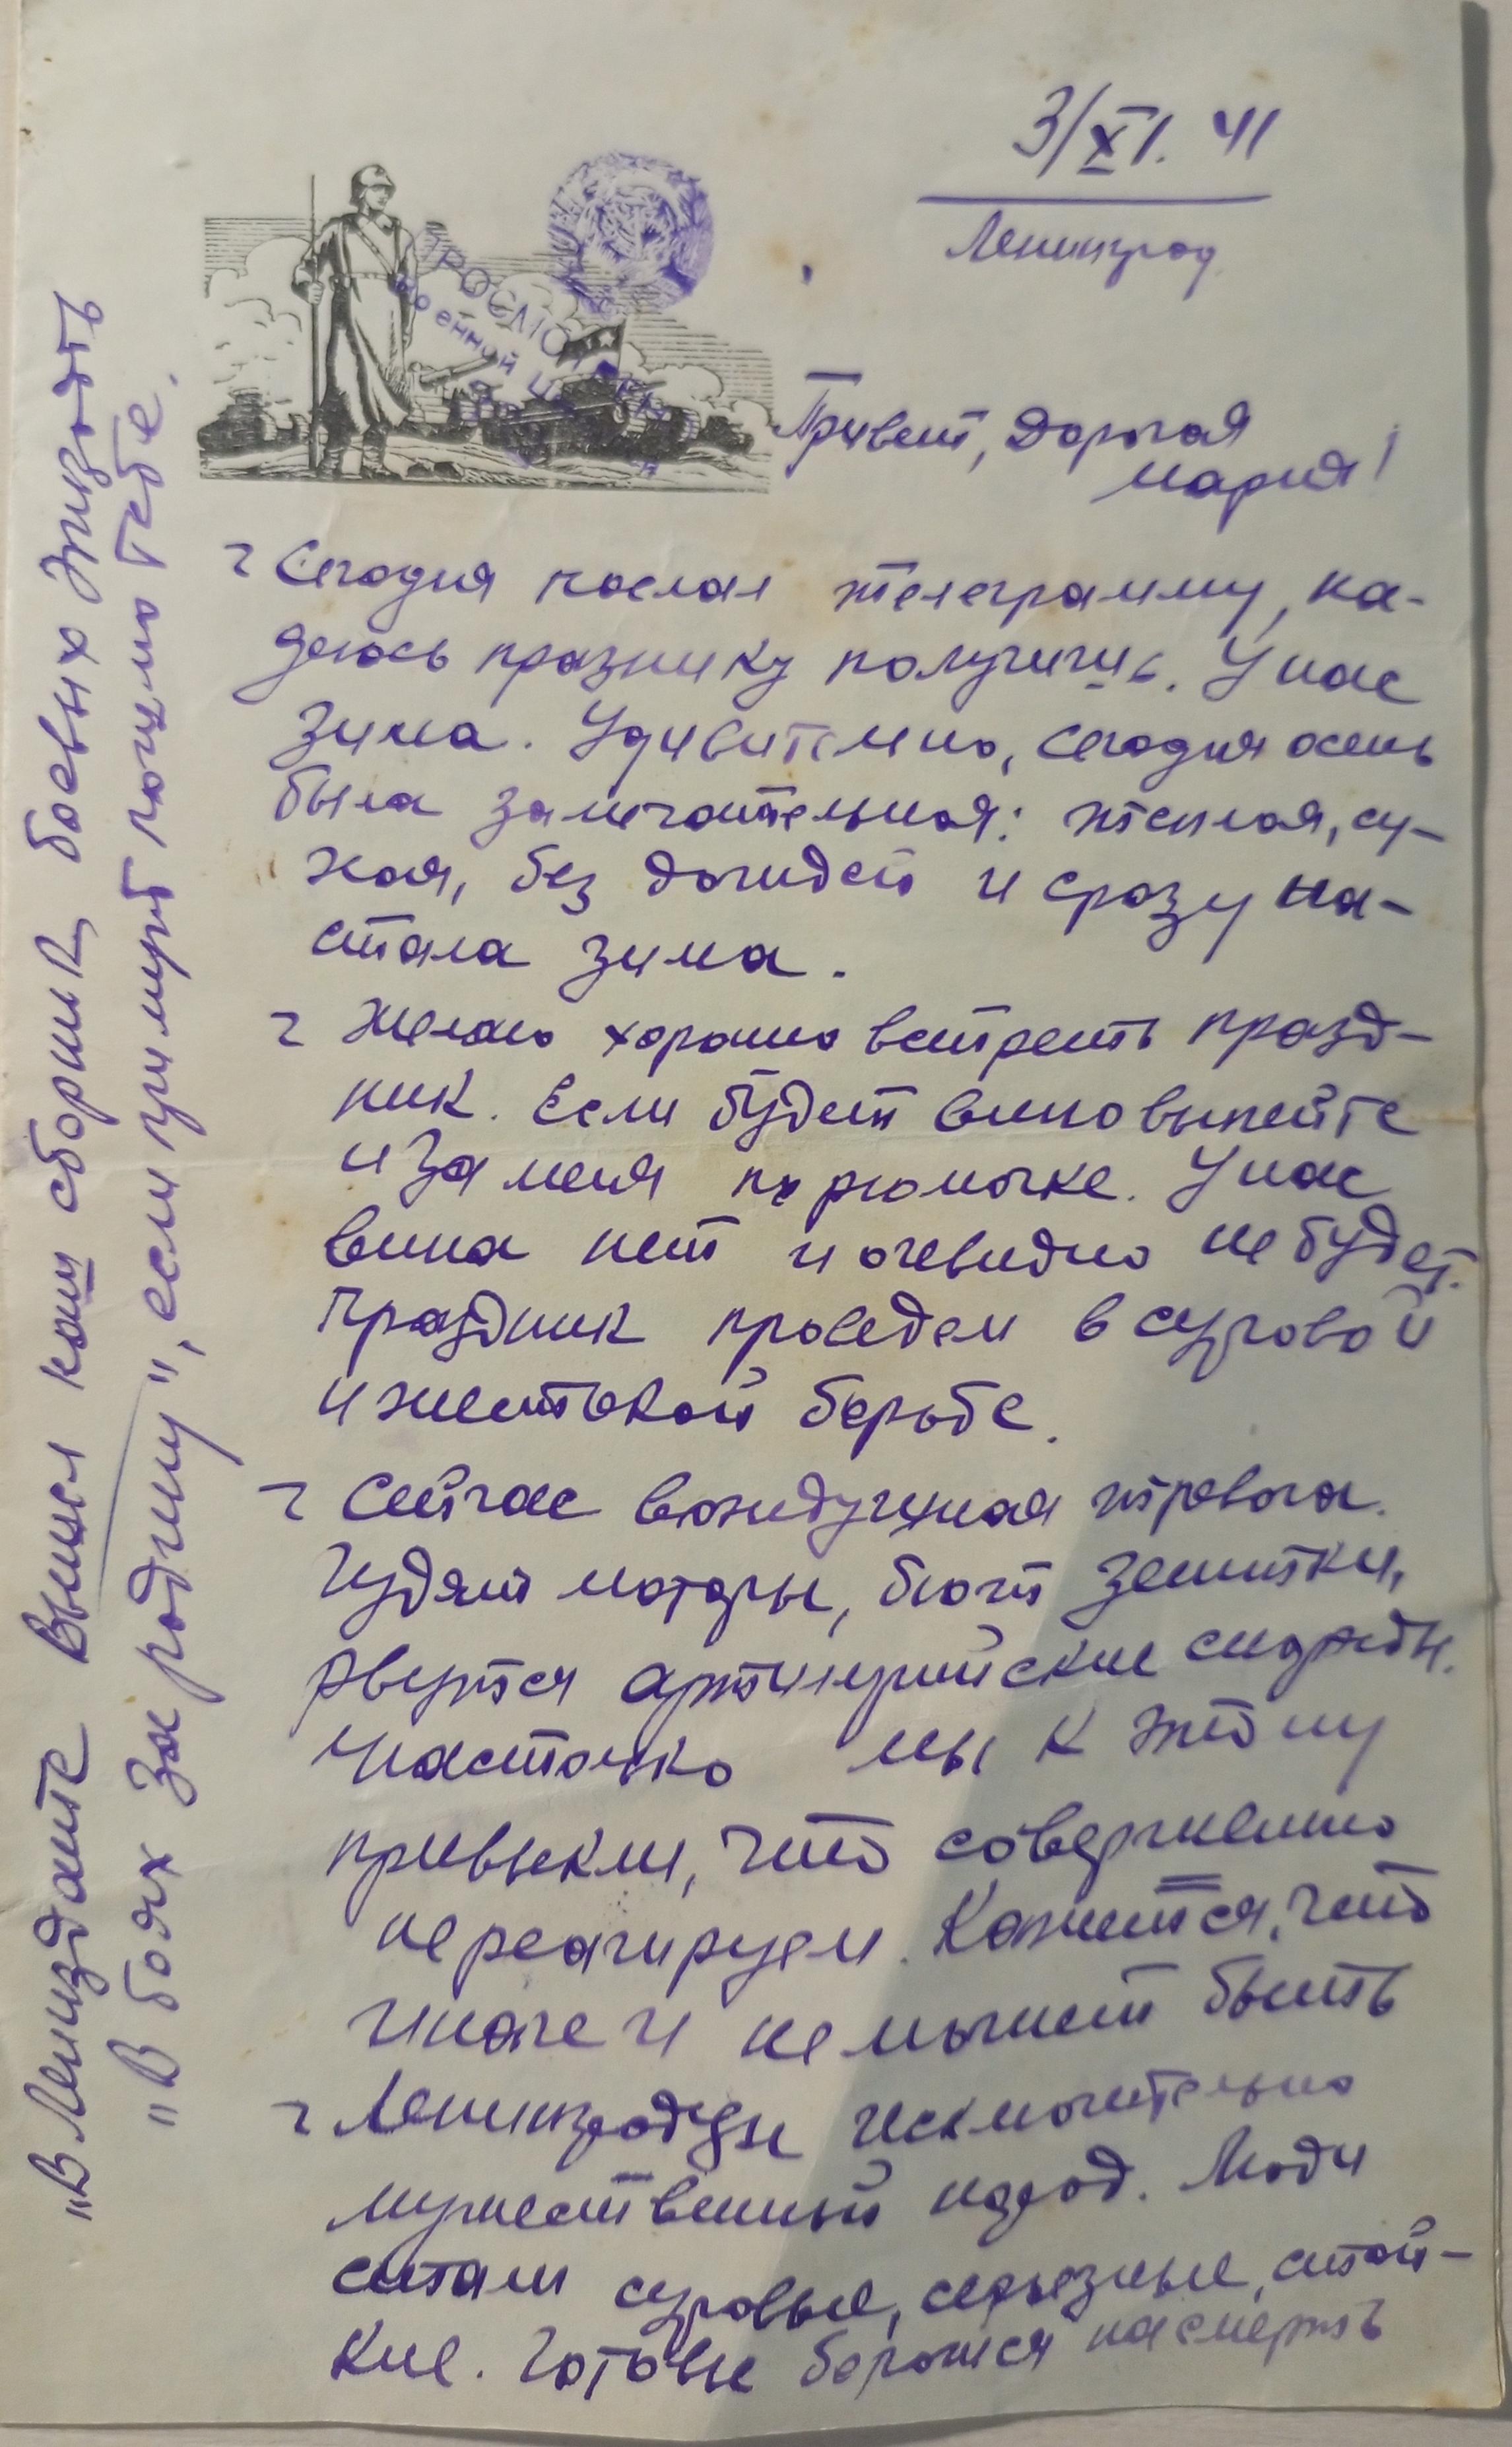 3/XI. 41
Ленинград
ПРОСМОТРЕНО
Военной
Привет, дорогая
Мария!
Сегодня послал телеграмму, на-
деюсь празнику получишь. У нас
зима. Удивительно, сегодня осень
была замечательная: теплая, су-
хая, без дождей и сразу на-
стала зима.
Желаю хорошо встретить празд-
ник. Если будет вино выпейте
и за меня по рюмочке. У нас
вина нет и очевидно не будет.
Праздник проведем в суровой
и жестокой борьбе.
Сейчас воздушная тревога.
Гудят моторы, бьют зенитки,
рвутся артиллерийские снаряды.
Настолько мы к этому
привыкли, что совершенно
не реагируем. Кажется, что
иначе и не может быть
Ленинградцы исключительно
мужественный народ. Люди
стали суровые, серьезные, стой-
кие. Готовые бороться насмерть
"В Лениздате вышел наш сборник боевых эпизодов
"В боях за родину", если увижу пошлю тебе.